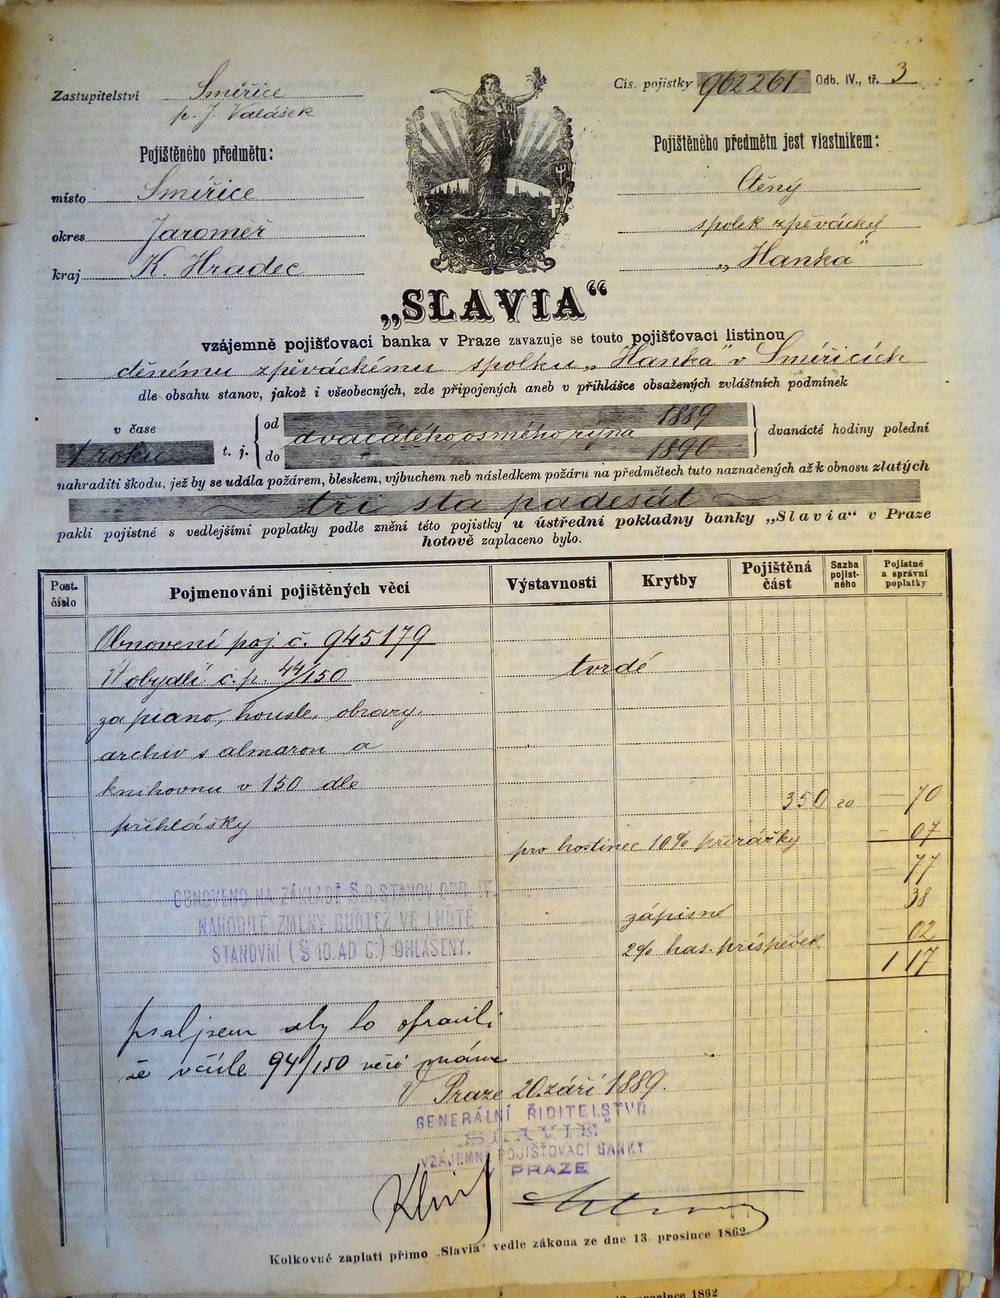 Zastupitelství Smiřice
p. J. Valášek
Čis. pojistky 962261 Odb. IV., tř. 3
Pojištěného předmětu:
místo Smiřice
okres Jaroměř
kraj K. Hradec
Pojištěného předmětu jest vlastníkem:
Ctěný
spolek zpěvácký
„Hanka“
„SLAVIA“
vzájemně pojišťovací banka v Praze zavazuje se touto pojišťovací listinou
ctěnému zpěváckému spolku „Hanka“ v Smiřicích
dle obsahu stanov, jakož i všeobecných, zde připojených aneb v přihlášce obsažených zvláštních podmínek
v čase
1 roku t. j.
od 1889
dvacátéhoosmého října
do 1890
dvanácté hodiny polední
nahraditi škodu, jež by se udála požárem, bleskem, výbuchem neb následkem požáru na předmětech tuto naznačených až k obnosu zlatých
tři sta padesát
pakli pojistné s vedlejšími poplatky podle znění této pojistky u ústřední pokladny banky „Slavia“ v Praze
hotově zaplaceno bylo.
Post. číslo Pojmenování pojištěných věcí Výstavnosti Krytby Pojištěná část Sazba pojistného Pojistné a správní poplatky
Obnovení poj. č. 945179
V obydlí č. p. 44/150 tvrdé
za piano, housle, obrazy,
archiv s almarou a
knihovnu v 150 dle 350 20 — 70
přihlášky
pro hostinec 10% přirážky — 07
— 77
zápisné — 38
2% has. příspěvek — 02
1 17
OBNOVENO NA ZÁKLADĚ § 9 STANOV ODB. IV.
NAHODILÉ ZMĚNY BUĎTEŽ VE LHŮTĚ
STANOVNÍ (§ 10. AD C.) OHLÁŠENY.
psal jsem aby to opravili
že v čísle 94/150 nečí
V Praze 20. září 1889.
GENERÁLNÍ ŘIDITELSTVO
„SLAVIE“
VZÁJEMNĚ POJIŠŤOVACÍ BANKY
V PRAZE
Kolkovné zaplatí přímo „Slavia“ vedle zákona ze dne 13. prosince 1862.
prosince 1862